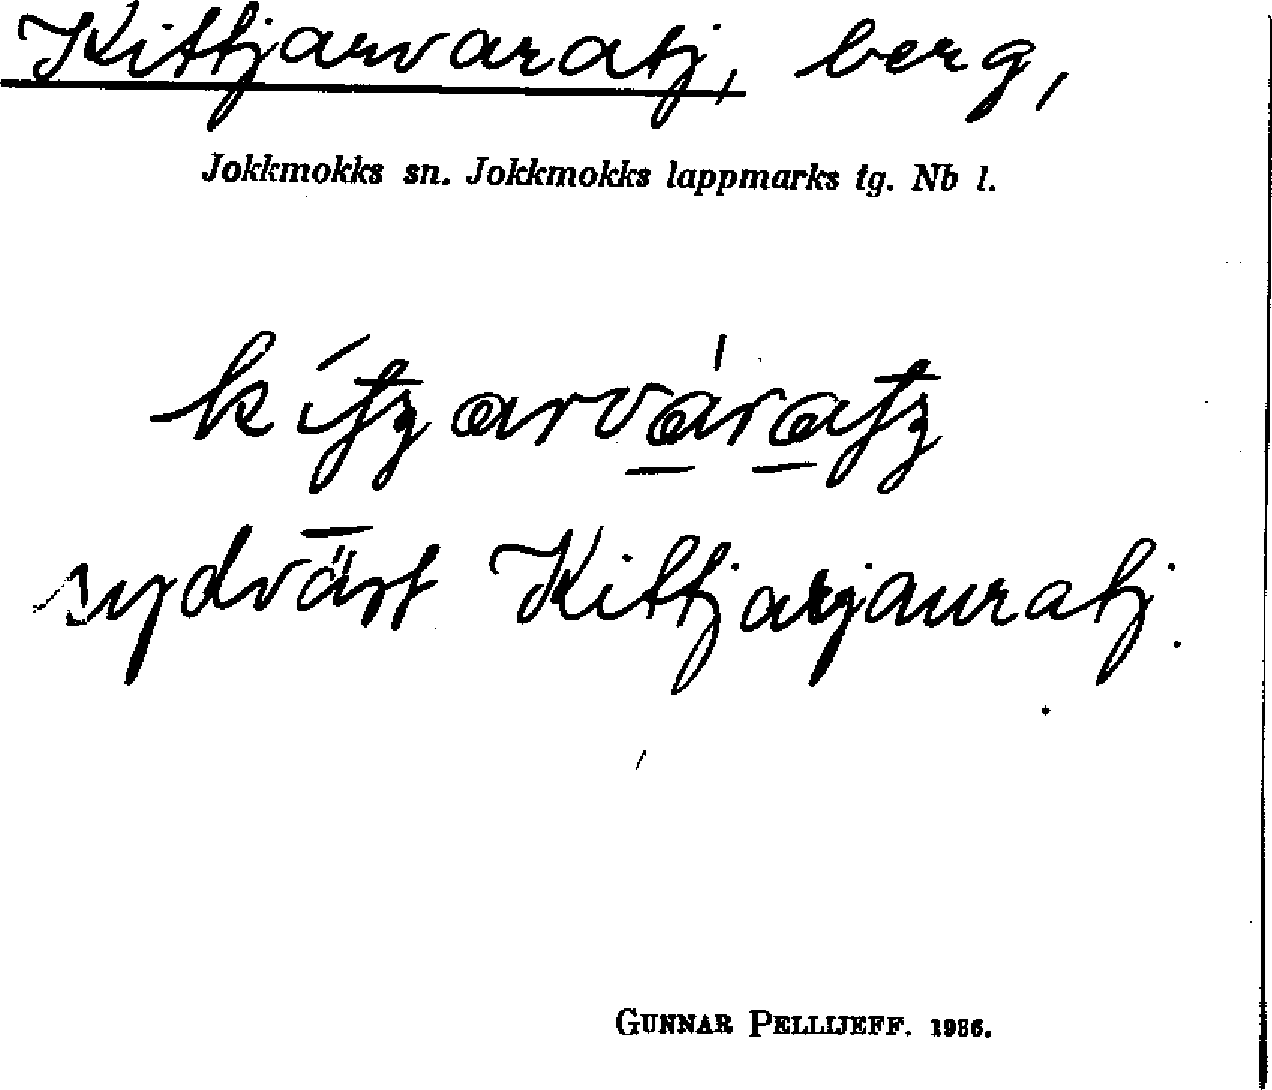 Kittjarvaratj, berg,
Jokkmokks sn. Jokkmokks lappmarks tg. Nb l.
sydväst Kittjarjauratj.
GUNNAR PELLIJEFF. 1986.